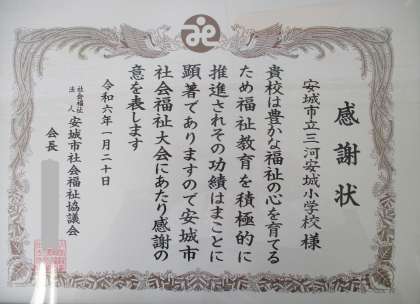 感謝状
安城市立三河安城小学校様
貴校は豊かな福祉の心を育てる
ため福祉教育を積極的に
推進されその功績はまことに
顕著でありますので安城市
社会福祉大会にあたり感謝の
意を表します
令和六年一月二十日
社会福祉法人 安城市社会福祉協議会
会長